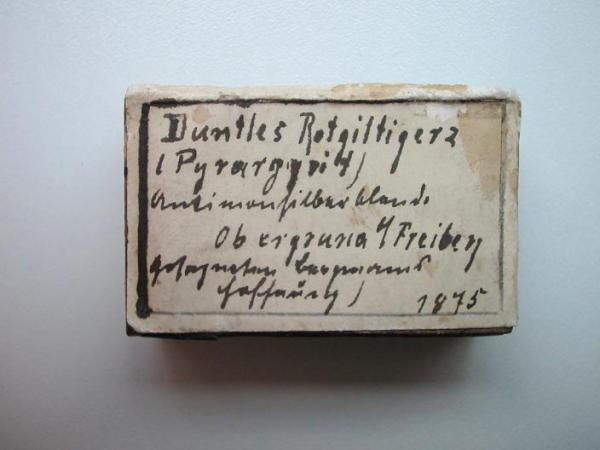 Dunkles Rotgiltigerz
(Pyrargyrit)
Antimonsilberblende
Obergruna b/Freiberg
Gesegneten Bergmanns
Hoffnung)
1875